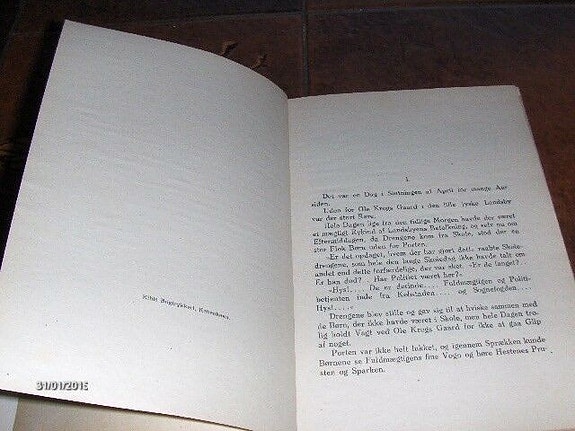 Eibit Bogtrykkeri, København.
1
Det var en Dag i Slutningen af April for mange Aar
siden.
Uden for Ole Krogs Gaard i den lille jyske Landsby
var der stort Røre.
Hele Dagen lige fra den tidlige Morgen havde der været
et mægligt Rykind af Landsbyens Befolkning, og selv nu om
Eftermiddagen, da Drengene kom fra Skole, stod der en
stor Flok Børn uden for Porten.
»Er det opdaget, hvem der har gjort det?, raabte Skole-
drengene, som hele den lange Skoledag ikke havde talt om
andet end dette forfærdelige, der var sket. »Er de fanget?
Er han død? Har Politiet været her?«
»Hys!.... De er derinde.... Fuldmægtigen og Politi-
betjenten inde fra Købstaden.... og Sognefogden....
Hys!....«
Drengene blev stille og gav sig til at hviske sammen med
de Børn, der ikke havde været i Skole, men hele Dagen tro-
lig holdt Vagt ved Ole Krogs Gaard for ikke at gaa Glip
af noget.
Porten var ikke helt lukket, og igennem Sprækken kunde
Børnene se Fuldmægtigens fine Vogn og høre Hestenes Pru-
sten og Sparken.
31/01/2015